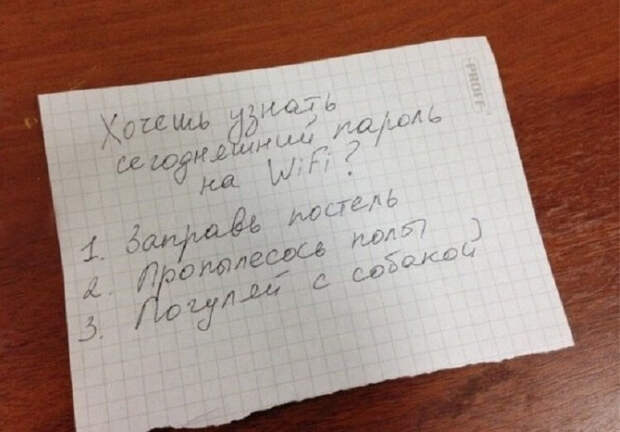 Хочешь узнать
сегодняшний пароль
на WiFi?
1. Заправь постель
2. Пропылесось полы
3. Погуляй с собакой
PROFF